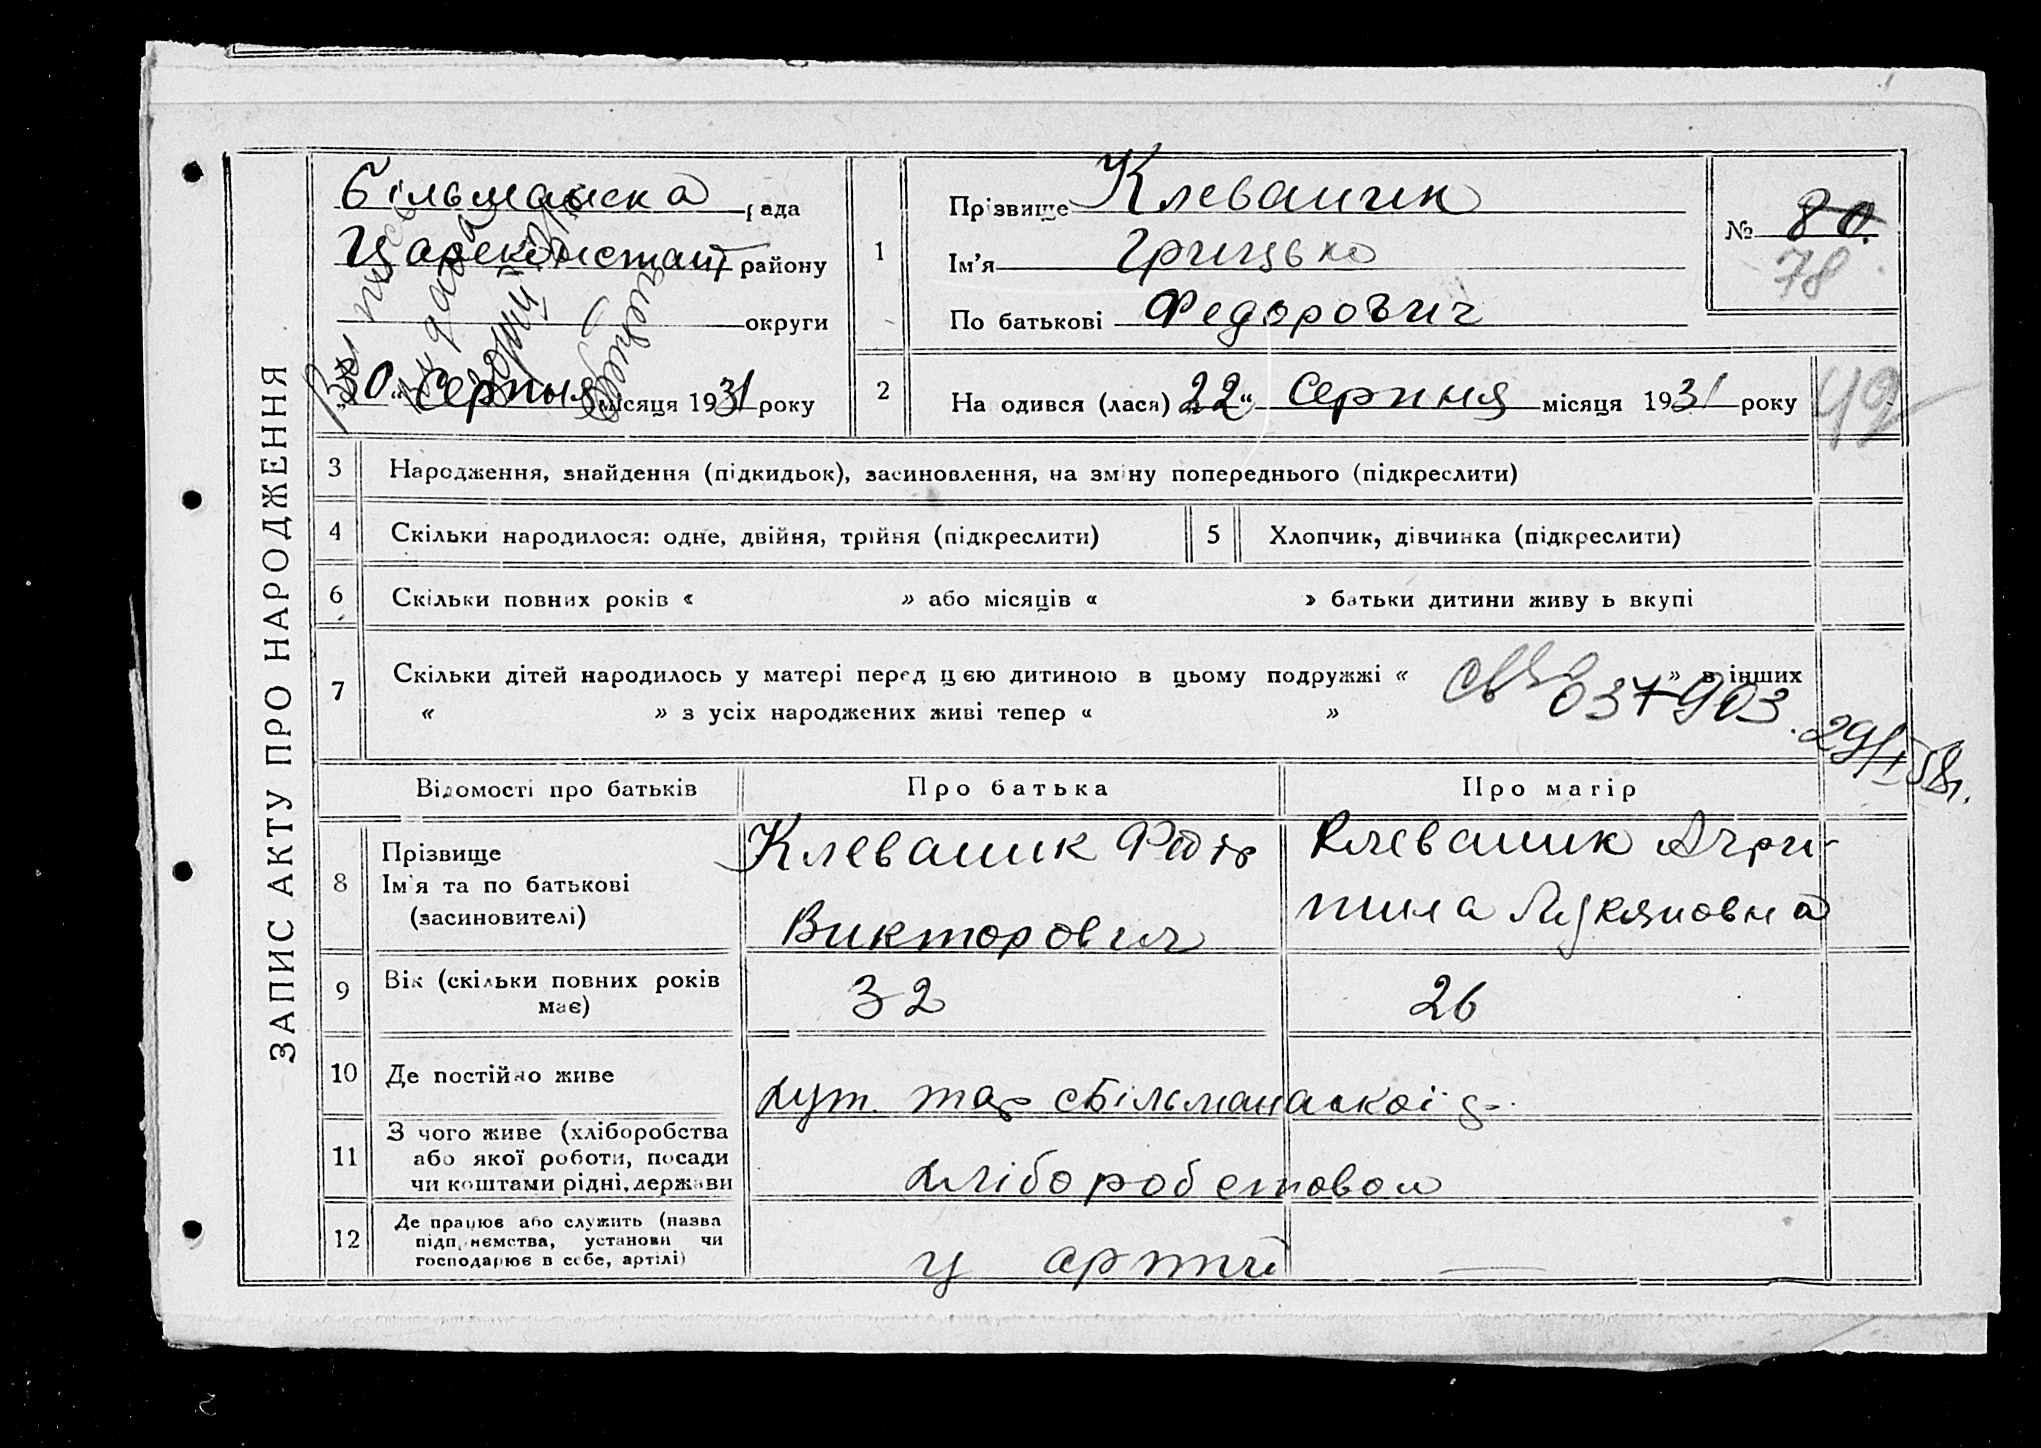 ЗАПИС АКТУ ПРО НАРОДЖЕННЯ
Більманска рада
Цареконстант району
округи
30 "Серпня місяця 1931 року
1
Прізвище Клеваник
Ім'я Грицько
По батькові Федорович
№ 80.
78
2
На одився (лася) 22 " Серпня місяця 1931 року
49
3 Народження, знайдення (підкидьок), засиновлення, на зміну попереднього (підкреслити)
4 Скільки народилося: одне, двійня, трійня (підкреслити)
5 Хлопчик, дівчинка (підкреслити)
6 Скільки повних років « » або місяців « » батьки дитини живу ь вкупі
7 Скільки дітей народилось у матері перед цею дитиною в цьому подружжі « » в інших
« » з усіх народжених живі тепер « »
037903. 29/I 58г.
Відомості про батьків
Про батька
Про матір
8
Прізвище
Ім'я та по батькові
(засиновителі)
Клеваник Федір
Викторович
Клеваник Агри-
пина Лукяновна
9
Вік (скільки повних років
має)
32
26
10 Де постійно живе
хут. Більманаской
11
З чого живе (хліборобства
або якої роботи, посади
чи коштами рідні, держави
хліборобством
12
Де працює або служить (назва
підприємства, установи чи
господарює в себе, артілі)
у артілі